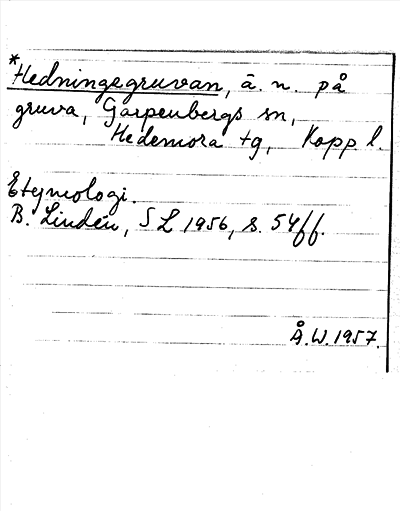 *Hedningegruvan, ä. n. på
gruva, Garpenbergs sn,
Hedemora tg, Kopp. l.
Etymologi.
B. Lindén, SL 1956, s. 54ff.
Å.W. 1957.